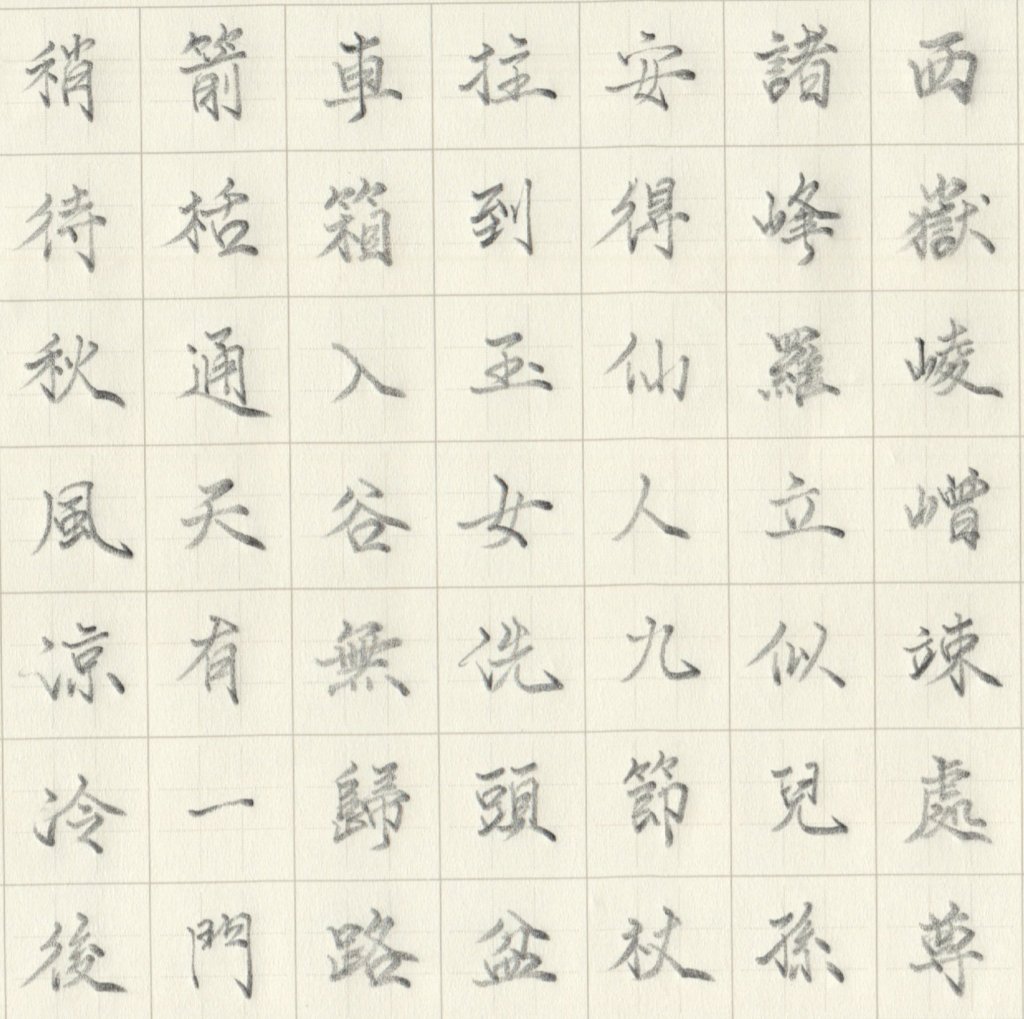 西嶽崚嶒竦處尊
諸峰羅立似兒孫
安得仙人九節杖
拄到玉女洗頭盆
車箱入谷無歸路
箭栝通天有一門
稍待秋風涼冷後